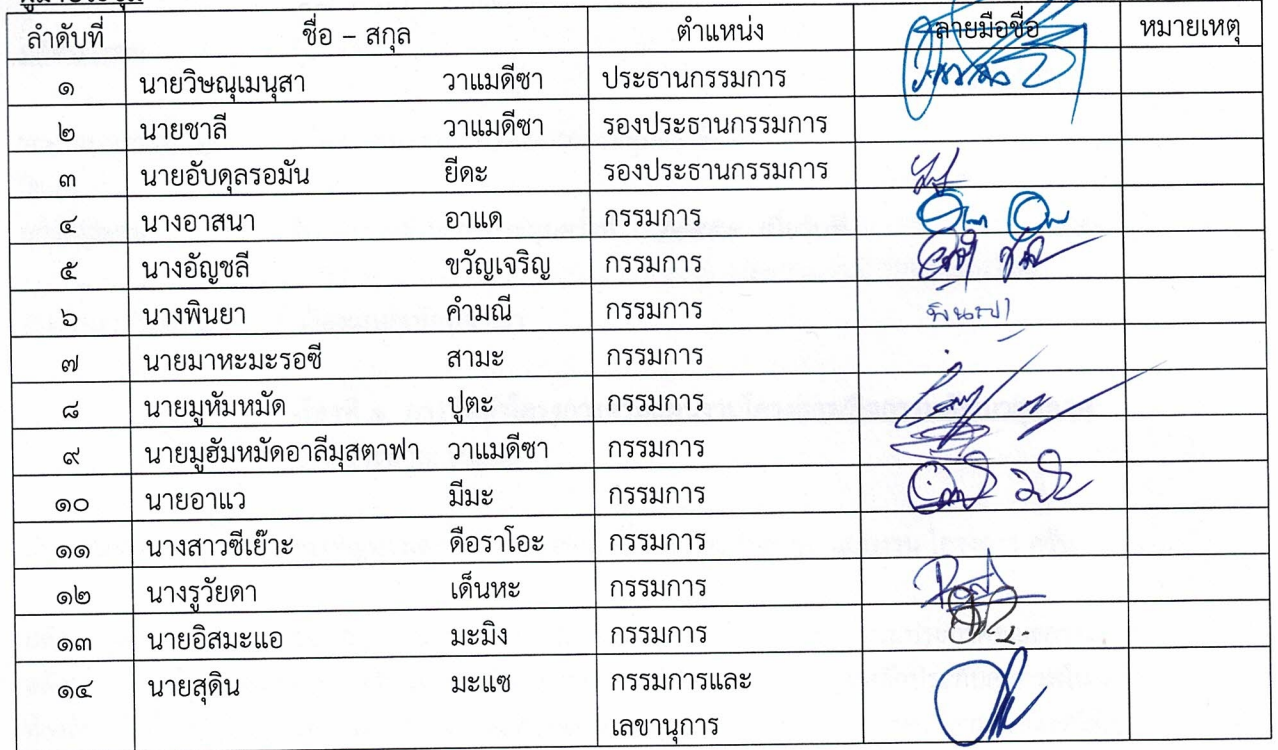 ผู้มาประชุม
ลำดับที่ ชื่อ – สกุล ตำแหน่ง ลายมือชื่อ หมายเหตุ
๑ นายวิษณุเมนุสา วาแมดีซา ประธานกรรมการ
๒ นายชาลี วาแมดีซา รองประธานกรรมการ
๓ นายอับดุลรอมัน ยีดะ รองประธานกรรมการ
๔ นางอาสนา อาแด กรรมการ
๕ นางอัญชลี ขวัญเจริญ กรรมการ
๖ นางพินยา คำมณี กรรมการ พินยา
๗ นายมาหะมะรอซี สามะ กรรมการ
๘ นายมูหัมหมัด ปูตะ กรรมการ
๙ นายมูฮัมหมัดอาลีมุสตาฟา วาแมดีซา กรรมการ
๑๐ นายอาแว มีมะ กรรมการ
๑๑ นางสาวซีเย๊าะ ดือราโอะ กรรมการ
๑๒ นางรูวัยดา เด็นหะ กรรมการ
๑๓ นายอิสมะแอ มะมิง กรรมการ
๑๔ นายสุดิน มะแซ กรรมการและ
เลขานุการ